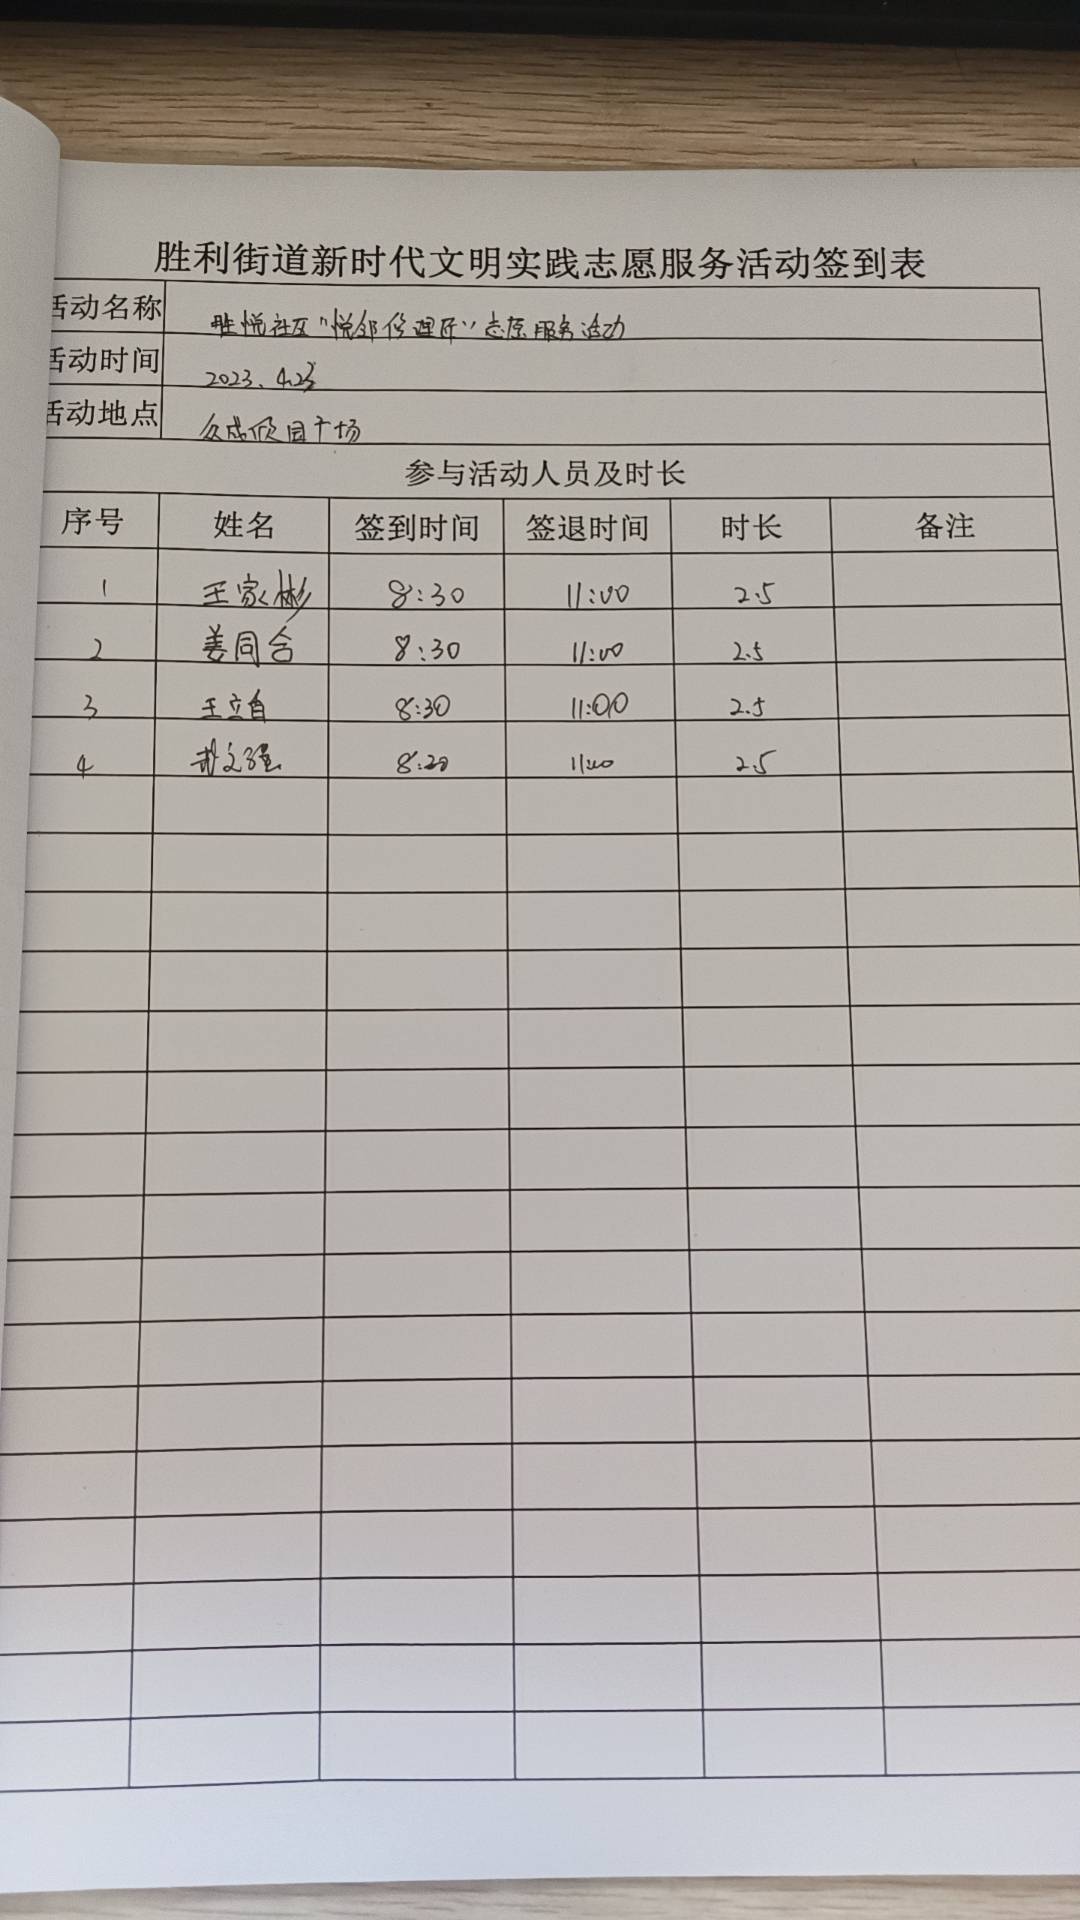 胜利街道新时代文明实践志愿服务活动签到表
活动名称 胜悦社区"悦邻修理匠"志愿服务活动
活动时间 2023.4.23
活动地点 众成欣园广场
参与活动人员及时长
序号 姓名 签到时间 签退时间 时长 备注
1 王家彬 8:30 11:00 2.5
2 姜同合 8:30 11:00 2.5
3 王立自 8:30 11:00 2.5
4 8:30 11:00 2.5